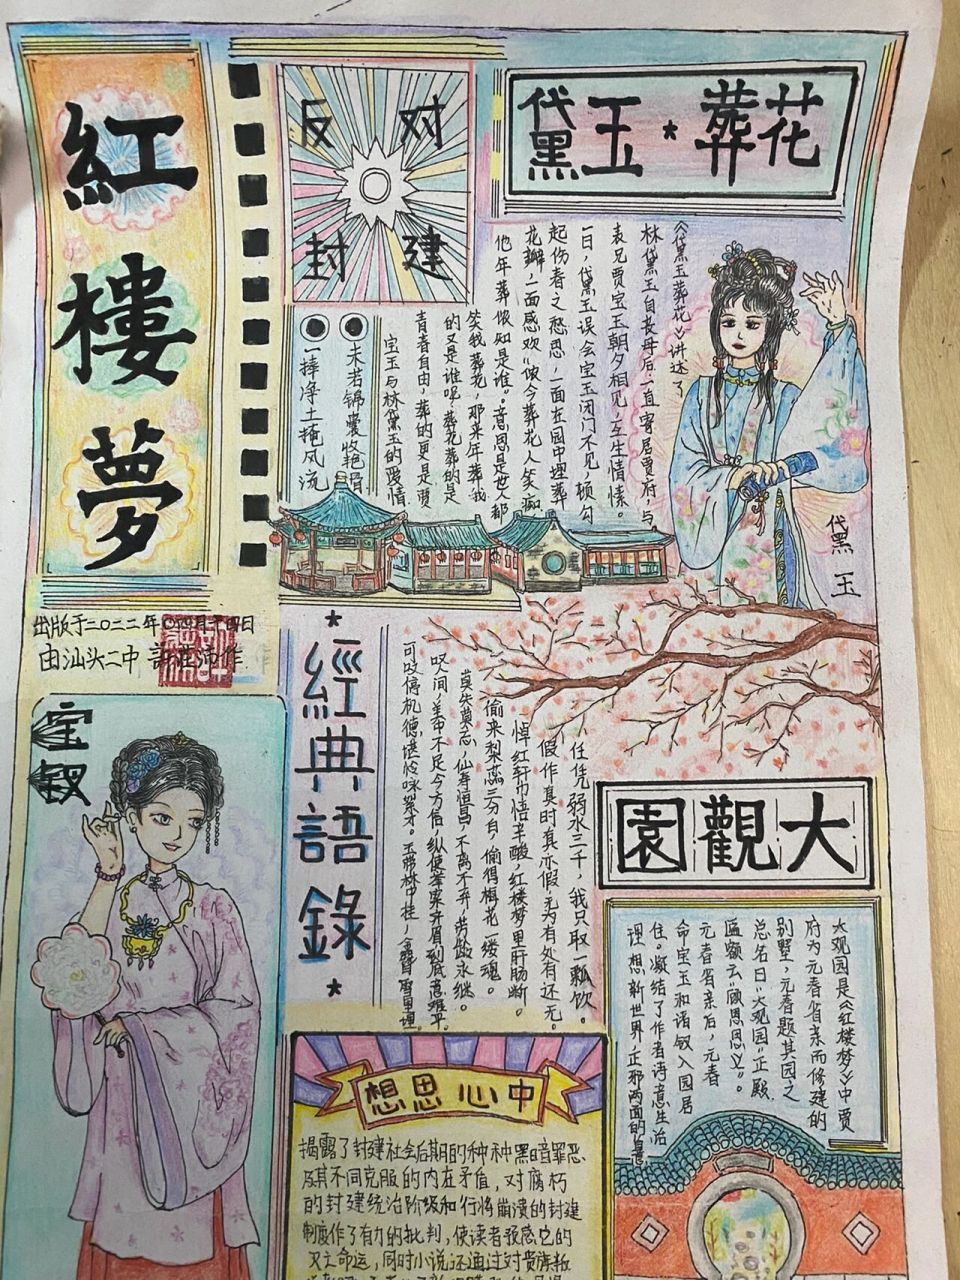 紅樓夢
反对
封建
黛玉★葬花
《黛玉葬花》讲述了
林黛玉自丧母后,一直寄居贾府,与
表兄贾宝玉朝夕相见,互生情愫。
一日,黛玉误会宝玉闭门不见,顿勾
起伤春之愁思,一面在园中埋葬
花瓣,一面感叹"侬今葬花人笑痴
他年葬侬知是谁。意思是世人都
笑我葬花,那来年葬我
的又是谁呢,葬花葬的是
青春自由,葬的更是贾
宝玉与林黛玉的爱情
未若锦囊收艳骨
一抔净土掩风流
黛玉
出版于二〇二二年
由汕头二中
作
宝钗
★經典語錄★
任凭弱水三千,我只取一瓢饮。
假作真时真亦假,无为有处有还无。
悼红轩中悟辛酸,红楼梦里肝肠断。
偷来梨蕊三分白,偷得梅花一缕魂。
莫失莫忘,仙寿恒昌,不离不弃,芳龄永继。
叹人间,美中不足今方信,纵使举案齐眉到底意难平。
可叹停机德,堪怜咏絮才。玉带林中挂,金簪雪里埋
大觀園
大观园是《红楼梦》中贾
府为元春省亲而修建的
别墅,元春题其园之
总名曰"大观园"正殿
匾额云"顾恩思义"。
元春省亲后,元春
命宝玉和诸钗入园居
住。凝结了作者诗意生活
理想,新世界,正邪两面的
中心思想
揭露了封建社会后期的种种黑暗罪恶
及其不同克服的内在矛盾,对腐朽
的封建统治阶级和行将崩溃的封建
制度作了有力的批判,使读者预感它的
命运,同时小说还通过对贵族叛